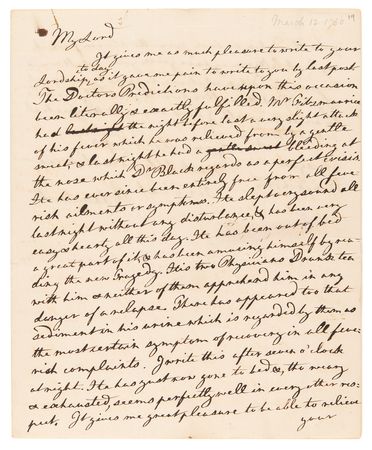 March 12 1760
My Lord
It gives me as much pleasure to write to your
Lordship to day, as it gave me pain to write to you by last post
The Doctors Predictions have upon this occasion
been literally & exactly fulfilled. Mr Fitzmaurice
had the night before last a very slight attack
of his fever which he was relieved from by a gentle
sweat; & last night he had a bleeding at
the nose which Dr Black regards as a perfect crisis
He has ever since been entirely free from all feve
rish ailments or symptoms. He slept very sound all
last night without any disturbance, & has been very
easy & hearty all this day. He has been out of bed
a great part of it & has been amusing himself by rea
ding the new Tragedy. His two Physicians Drank tea
with him & neither of them apprehend him in any
danger of a relapse. There has appeared too that
sediment in his urine which is regarded by them as
the most certain symptom of recovery in all feve
rish complaints. I write this after seven o'clock
at night. He has just now gone to bed &, tho weary
& exhausted, seems perfectly well in every other res
pect. It gives me great pleasure to be able to relieve
your